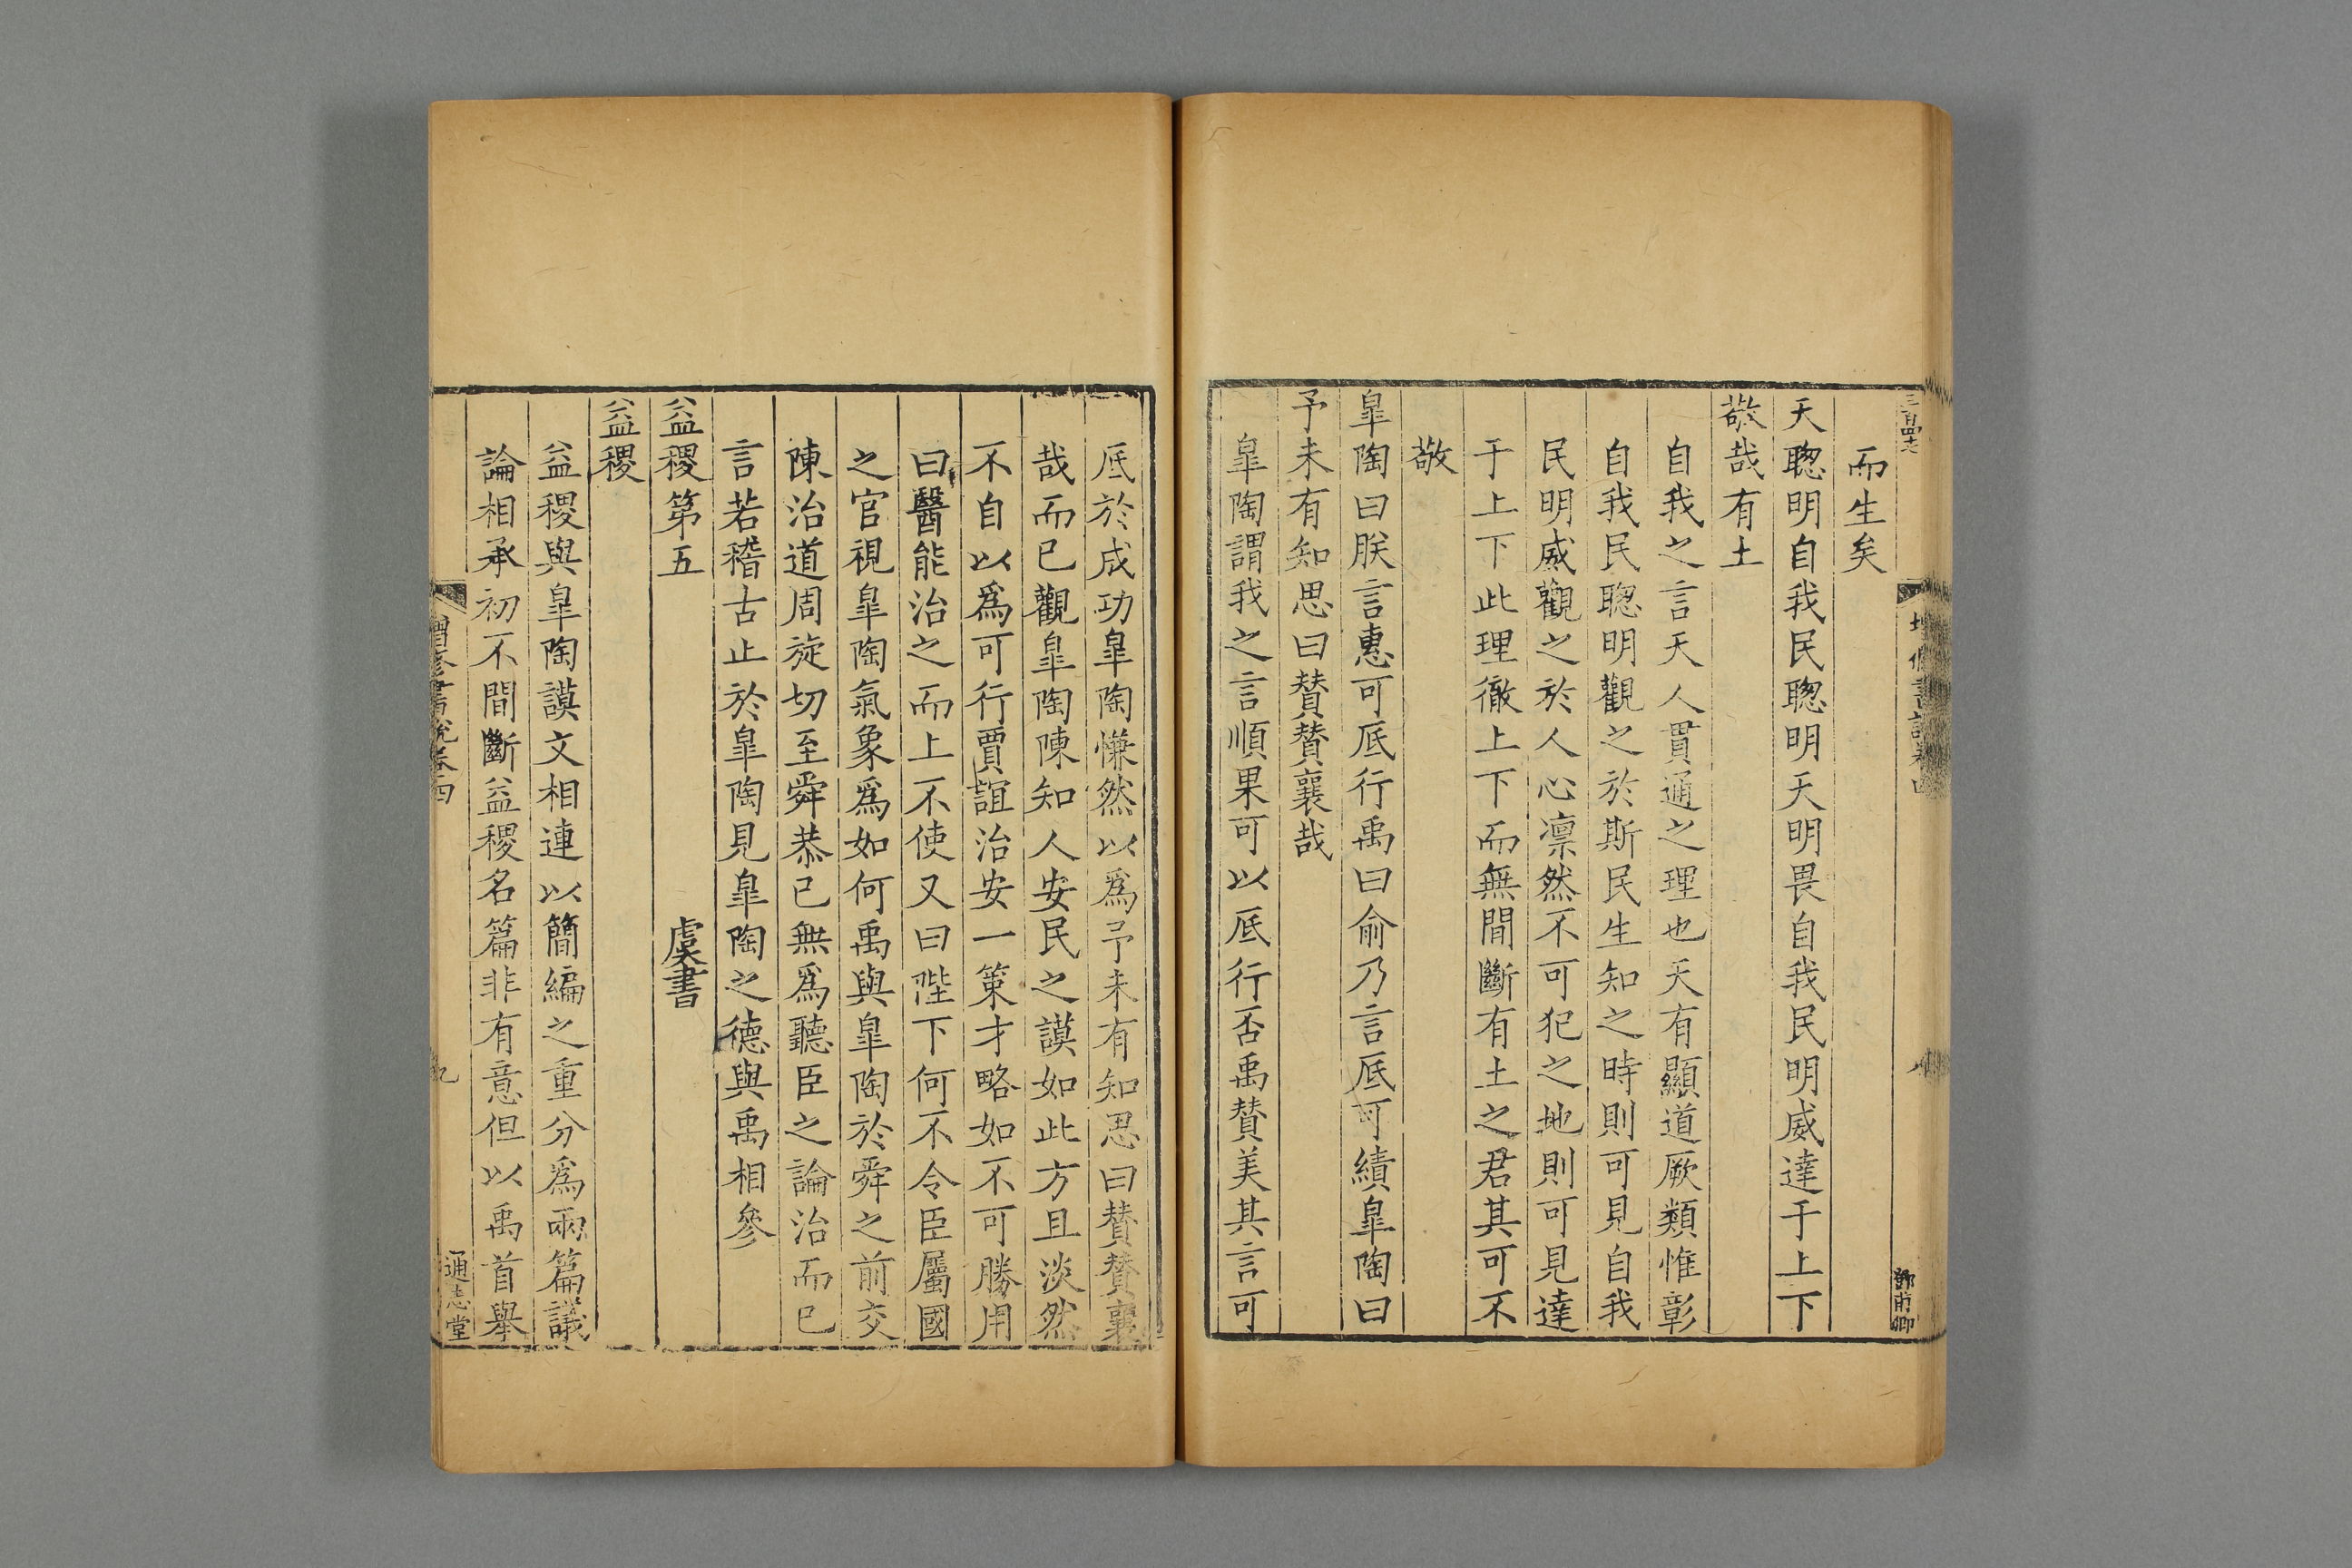 而生矣
天聦明自我民聦明天明畏自我民明威達于上下
敬哉有土
自我之言天人貫通之理也天有顯道厥類惟彰
自我民聦明觀之於斯民生知之時則可見自我
民明威觀之於人心凛然不可犯之地則可見達
于上下此理徹上下而無間斷有土之君其可不
敬
皐陶曰朕言惠可厎行禹曰俞乃言厎可績皐陶曰
予未有知思曰賛賛襄哉
皐陶謂我之言順果可以厎行否禹賛美其言可
厎於成功皐陶慊然以爲予未有知思曰賛賛襄
哉而已觀皐陶陳知人安民之謨如此方且淡然
不自以爲可行賈誼治安一策才略如不可勝用
曰醫能治之而上不使又曰陛下何不令臣屬國
之官視皐陶氣象爲如何禹與皐陶於舜之前交
陳治道周旋切至舜恭已無爲聽臣之論治而已
言若稽古止於皐陶見皐陶之德與禹相參
益稷第五 虞書
益稷
益稷與皐陶謨文相連以簡編之重分爲兩篇議
論相承初不間斷益稷名篇非有意但以禹首舉
增修書說卷四
九
通志堂